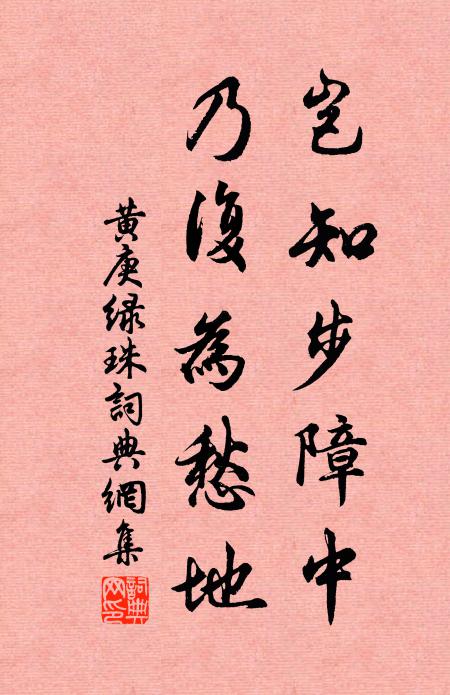 豈知步障中
乃復為愁地
黄庚绿珠詞典網集
詞典网印